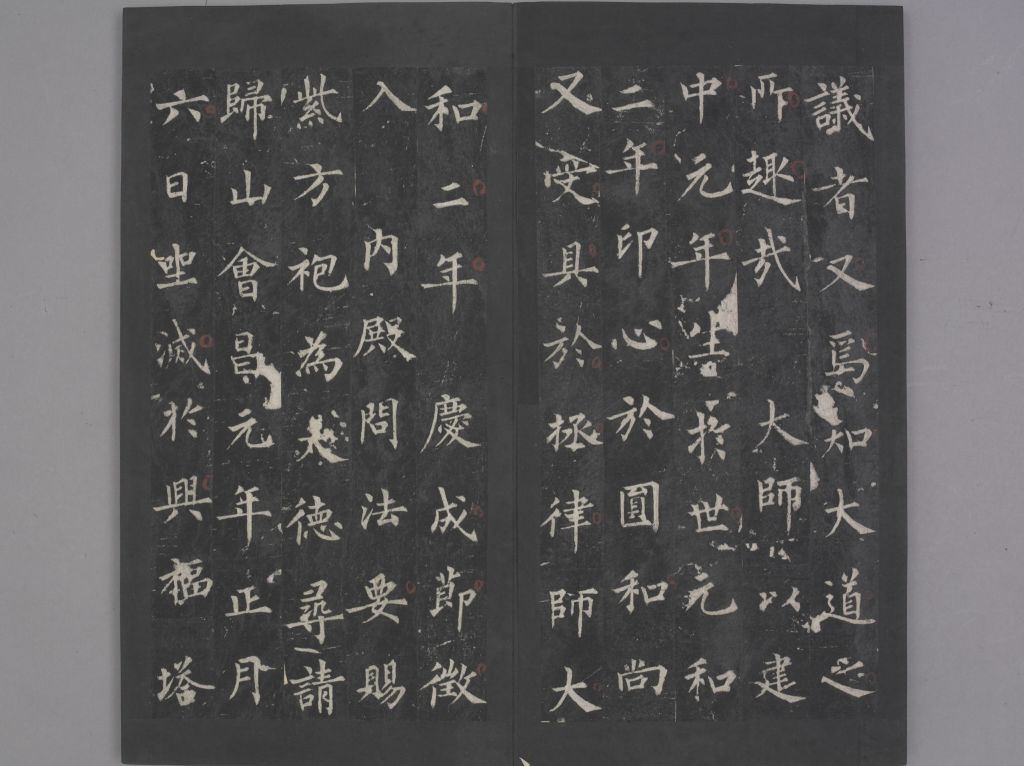 議者又焉知大道之
所趣哉 大師以建
中元年生於世元和
二年印心於圓和尚
又受具於拯律師大
和二年慶成節徵
入 內殿問法要賜
紫方袍為大德尋請
歸山會昌元年正月
六日坐滅於興福塔